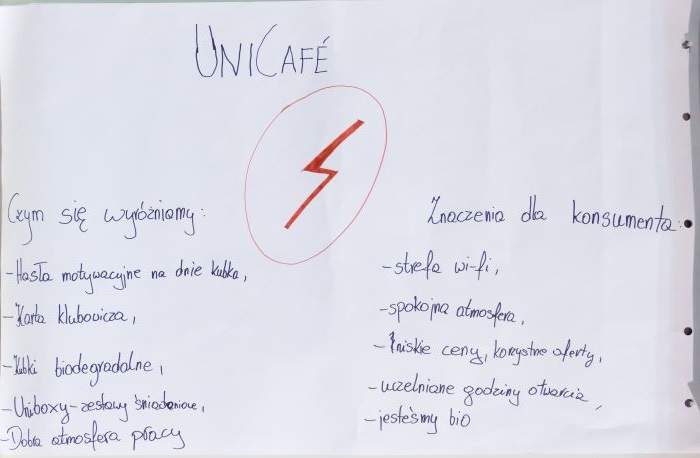 UNICAFÉ
Czym się wyróżniamy:
-Hasła motywacyjne na dnie kubka,
-Karta klubowicza,
-Kubki biodegradalne,
-Uniboxy-zestawy śniadaniowe,
-Dobra atmosfera pracy
Znaczenia dla konsumenta:
-strefa wi-fi,
-spokojna atmosfera,
-niskie ceny, korzystne oferty,
-uczelniane godziny otwarcia,
-jesteśmy bio